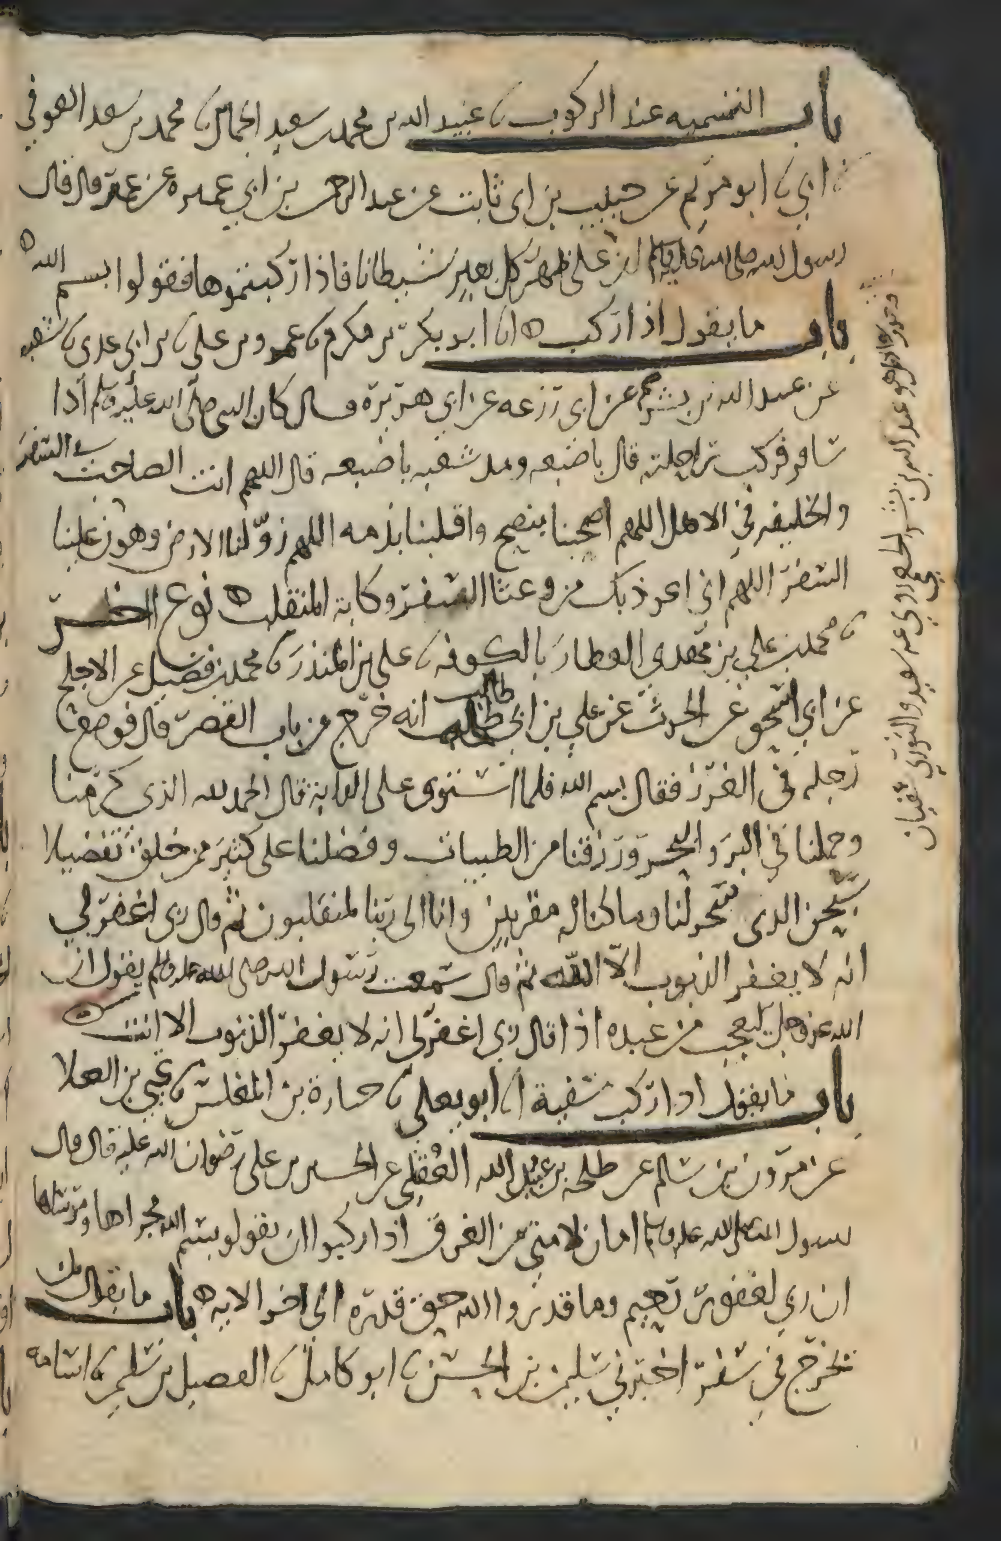 باب التسميه عند الركوب ثنا عبيد الله بن محمد بن سعيد الجمال ثنا محمد بن سعد العوفي
ثنا ابي ثنا ابو مريم عن حبيب بن ابي ثابت عن عبد الرحمن بن ابي عميره عن عمر قال قال
رسول الله صلى الله عليه وسلم ان على ظهر كل بعير شيطانا فاذا ركبتموها فقولوا بسم الله
باب ما يقول اذا ركب انا ابو بكر بن مكرم ثنا عمرو بن علي ثنا بن ابي عدي ثنا شعبه
عن عبد الله بن بشر عن ابي زرعه عن ابي هريرة قال كان النبي صلى الله عليه وسلم اذا
سافر فركب راحلته قال باصبعه ومد شعبه باصبعه قال اللهم انت الصاحب في السفر
والخليفه في الاهل اللهم اصحبنا بنصح واقلبنا بذمه اللهم زو لنا الارض وهون علينا
السفر اللهم اني اعوذ بك من وعثا السفر وكابة المنقلب نوع اخر
ثنا محمد بن علي بن مهدي العطار بالكوفه ثنا علي بن المنذر ثنا محمد بن فضيل عن الاجلح
عن ابي اسحق عن الحرث عن علي بن ابي طالب انه خرج من باب القصر قال فوضع
رجله في الغرز فقال بسم الله فلما استوى على الدابة قال الحمد لله الذي كرمنا
وحملنا في البر والبحر ورزقنا من الطيبات وفضلنا على كثير من خلق تفضيلا
سبحن الذي سخر لنا وما كنا له مقرنين وانا الى ربنا لمنقلبون ثم قال رب اغفر لي
انه لا يغفر الذنوب الا انت ثم قال سمعت رسول الله صلى الله عليه وسلم يقول ان
الله عز وجل ليعجب من عبده اذا قال رب اغفر لي انه لا يغفر الذنوب الا انت
باب ما يقول اذا ركب سفينة انا ابو يعلى ثنا جبارة بن المغلس ثنا يحيى بن العلا
عن مرون بن سالم عن طلحه بن عبيد الله العقيلي عن الحسين بن علي رضوان الله عليه قال قال
رسول الله صلى الله عليه وسلم امان لامتي من الغرق اذا ركبوا ان يقولو بسم الله مجراها ومرساها
ان ربي لغفور رحيم وما قدروا الله حق قدره الى اخر الايه باب ما يقول من
خرج في سفر اخبرني سليمن بن الحسن ثنا ابو كامل ثنا الفضيل بن سليمن ثنا اسامه
عبد الله بن بشر الخثعمي روى عنه سعيد والثوري سفيان